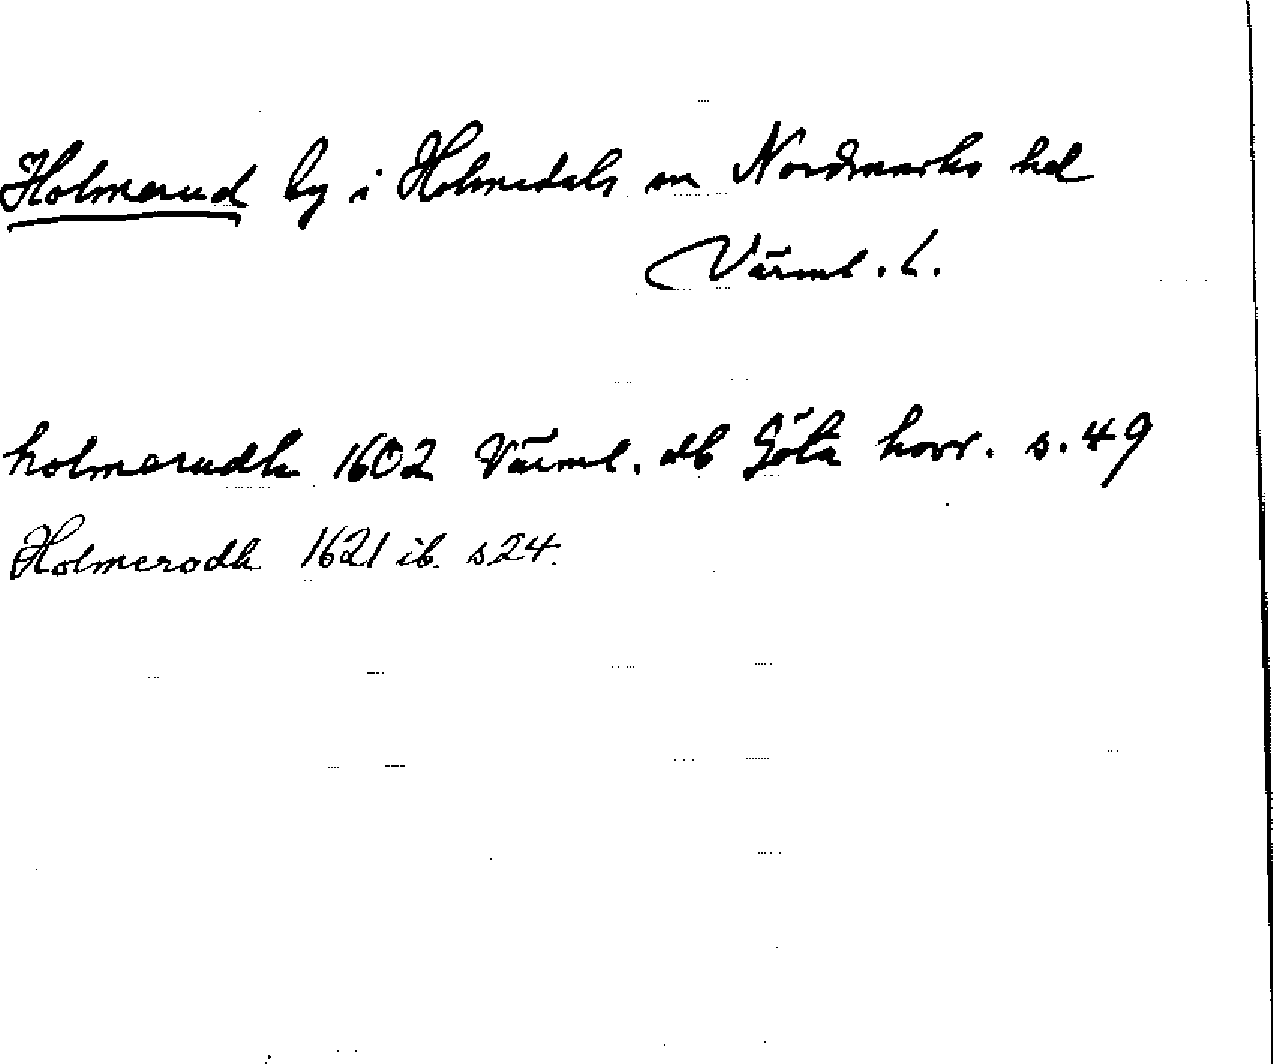 Holmerud by i Holmedals sn Nordmarks hd
Värml. l.
holmerudh 1602 Värml. db Göta hovr. s. 49
Holmerodh 1621 ib. s 24.